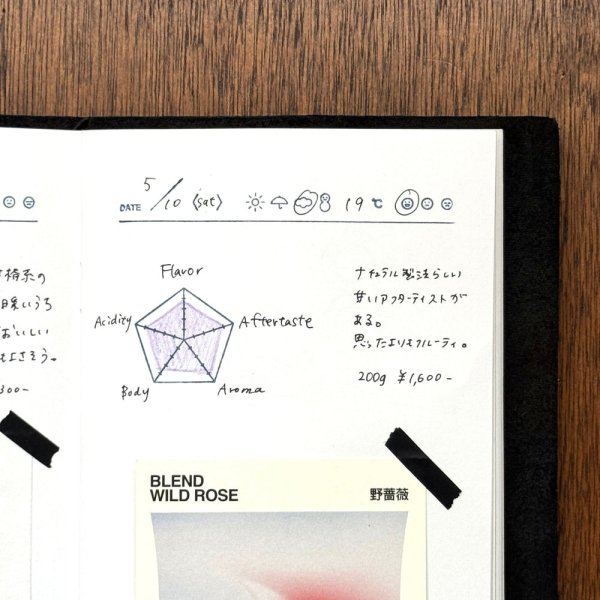 DATE 5/10 〈sat〉 19 ℃
Flavor
Acidity
Aftertaste
Body
Aroma
ナチュラル製法らしい
甘いアフターテイストが
ある。
思ったよりもフルーティ。
200g ¥1,600-
BLEND
WILD ROSE
野薔薇